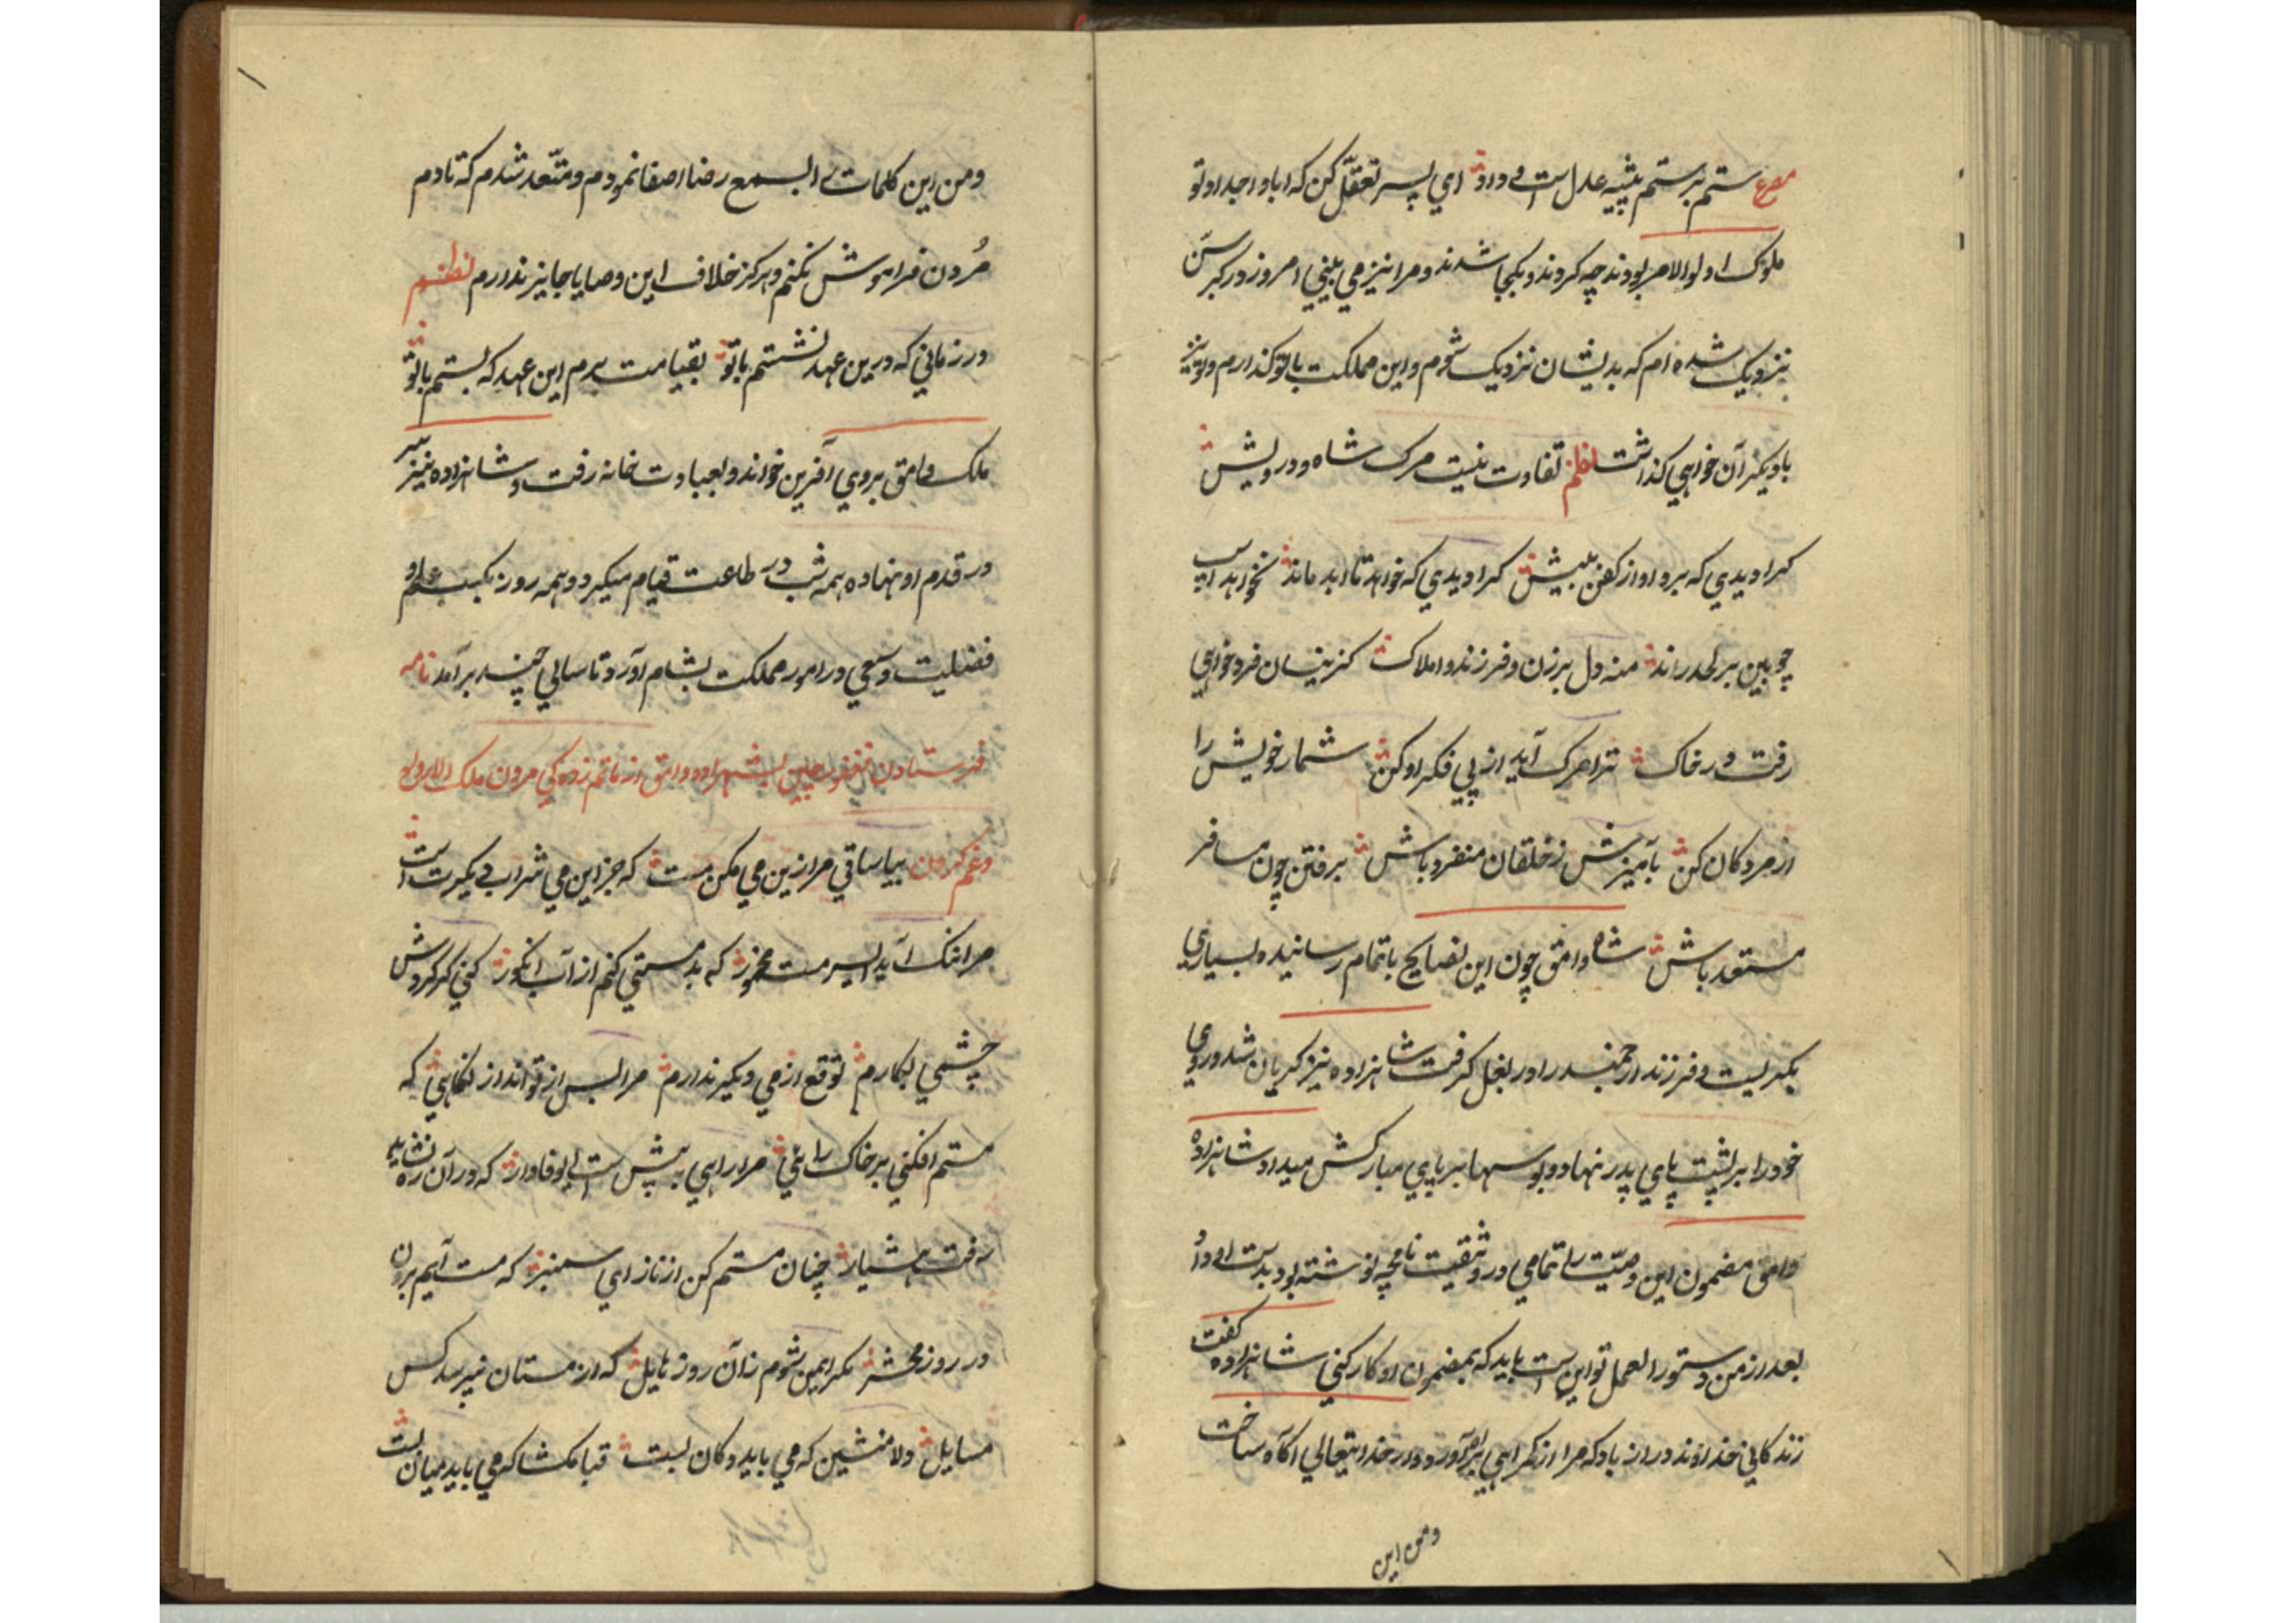 مصرع ستم بر ستم پیشه عدل است و داد ای پسر تعقّل کن که ابا و اجداد تو
ملوک اولوالامر بودند چه کردند و بکجا شدند و مرا نیز می بینی امروز در کبر سن
نزدیک شده ام که بدیشان نزدیک شوم و این مملکت با تو گذارم و تو نیز
با دیگران خواهی گذاشت نظم تفاوت نیست مرک شاه و درویش
کرا دیدی که برد او از کفن بیش کرا دیدی که خواهد تا ابد ماند نخواهد اسپ
چوبین بر لحد راند منه دل بر زن و فرزند و املاک کزینسان فرد خواهی
رفت در خاک ترا مرک آید از پی فکر او کن شمار خویش را
از مردکان کن بآمیزش ز خلقان منفرد باش برفتن چون مسافر
مستعد باش شاه وامق چون این نصایح باتمام رسانیده بسیاری
بگریست و فرزند ارجمند را در بغل گرفت شاهزاده نیز گریان شد و روی
خود را بر پشت پای پدر نهاد و بوسها بر پای مبارکش میداد شاهزاده
وامق مضمون این وصیّت را تمامی در وثیقت نامچه نوشته بود بدست او داد و
بعد از من دستورالعمل تو این است باید که بمضمون او کار کنی شاهزاده گفت
زندگانی خداوند دراز باد که مرا از گمراهی براه آورد و از خدایتعالی آگاه ساخت
و من این
و من این کلمات را بسمع رضا اصغا نمودم و متعهد شدم که تا دم
مُردن فراموش نکنم و هرگز خلاف این وصایا جایز ندارم نظم
در زمانی که درین عهد نشستم با تو بقیامت برم این عهد که بستم با تو
ملک وامق بروی آفرین خواند و بعبادت خانه رفت و شاهزاده نیز سر
در قدم او نهاده همه شب در طاعت قیام میکرد و همه روز بکسب علم و
فضلیت و سعی در امور مملکت بشام آورد تا سالی چند برآمد نامه
فرستادن فغفور چین بشهزاده وامق از ماتم زده کی مردن ملک
و غم کردن بیا ساقی مرا زین می مکن مست که جز این می شراب دیگرت است
مرا ننگ آید ای سرمست مخمور که بدمستی کنم از آب انگور کنی گر گردش
چشمی بکارم توقع از می دیگر ندارم مرا بس از تو انداز نگاهی که
مستم افکنی بر خاک راهی مرا راهی به پیش است ای وفادار که در آن ره نشاید
رفت هشیار چنان مستم کن از ناز ای سمنبر که مست آیم برون
در روز محشر مگر ایمن شوم زان روز هایل که از مستان نپرسد کس
مسایل دلا منشین که می باید دکان بست قبا مکشا که می باید میان بست